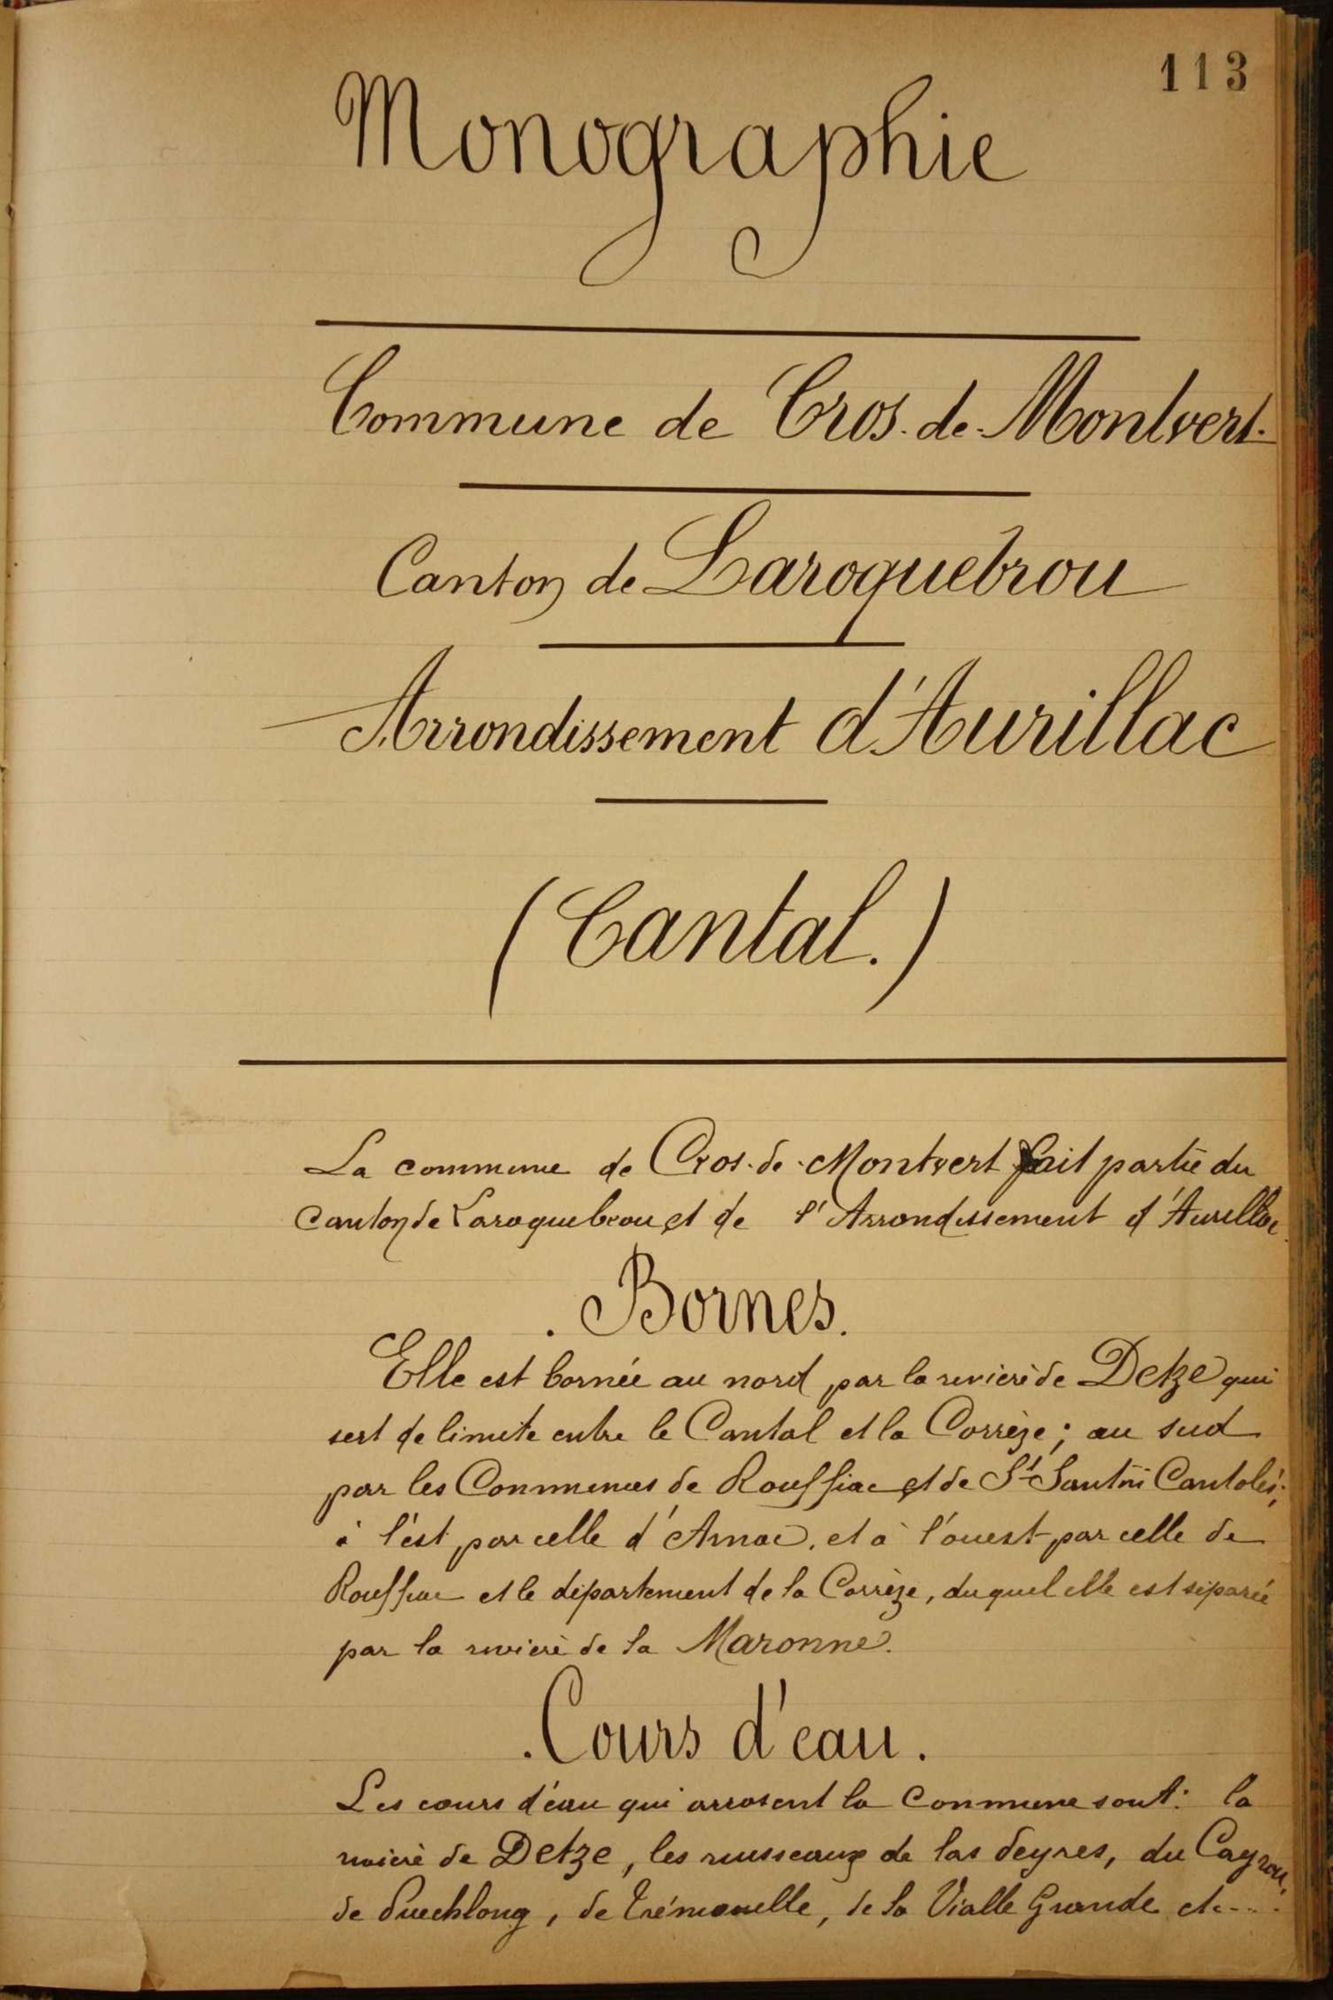 113
Monographie
Commune de Cros-de-Montvert.
Canton de Laroquebrou
Arrondissement d'Aurillac
(Cantal.)
La commune de Cros-de-Montvert fait partie du
canton de Laroquebrou et de l'Arrondissement d'Aurillac.
. Bornes.
Elle est bornée au nord par la rivière de Detze qui
sert de limite entre le Cantal et la Corrèze; au sud
par les Communes de Rouffiac et de St Santin Cantalès;
à l'est par celle d'Arnac, et à l'ouest par celle de
Rouffiac et le département de la Corrèze, duquel elle est séparée
par la rivière de la Maronne.
. Cours d'eau.
Les cours d'eau qui arrosent la Commune sont: la
rivière de Detze, les ruisseaux de las deyres, du Cayrou,
de Puechlong, de Trémouelle, de la Vialle Grande etc....